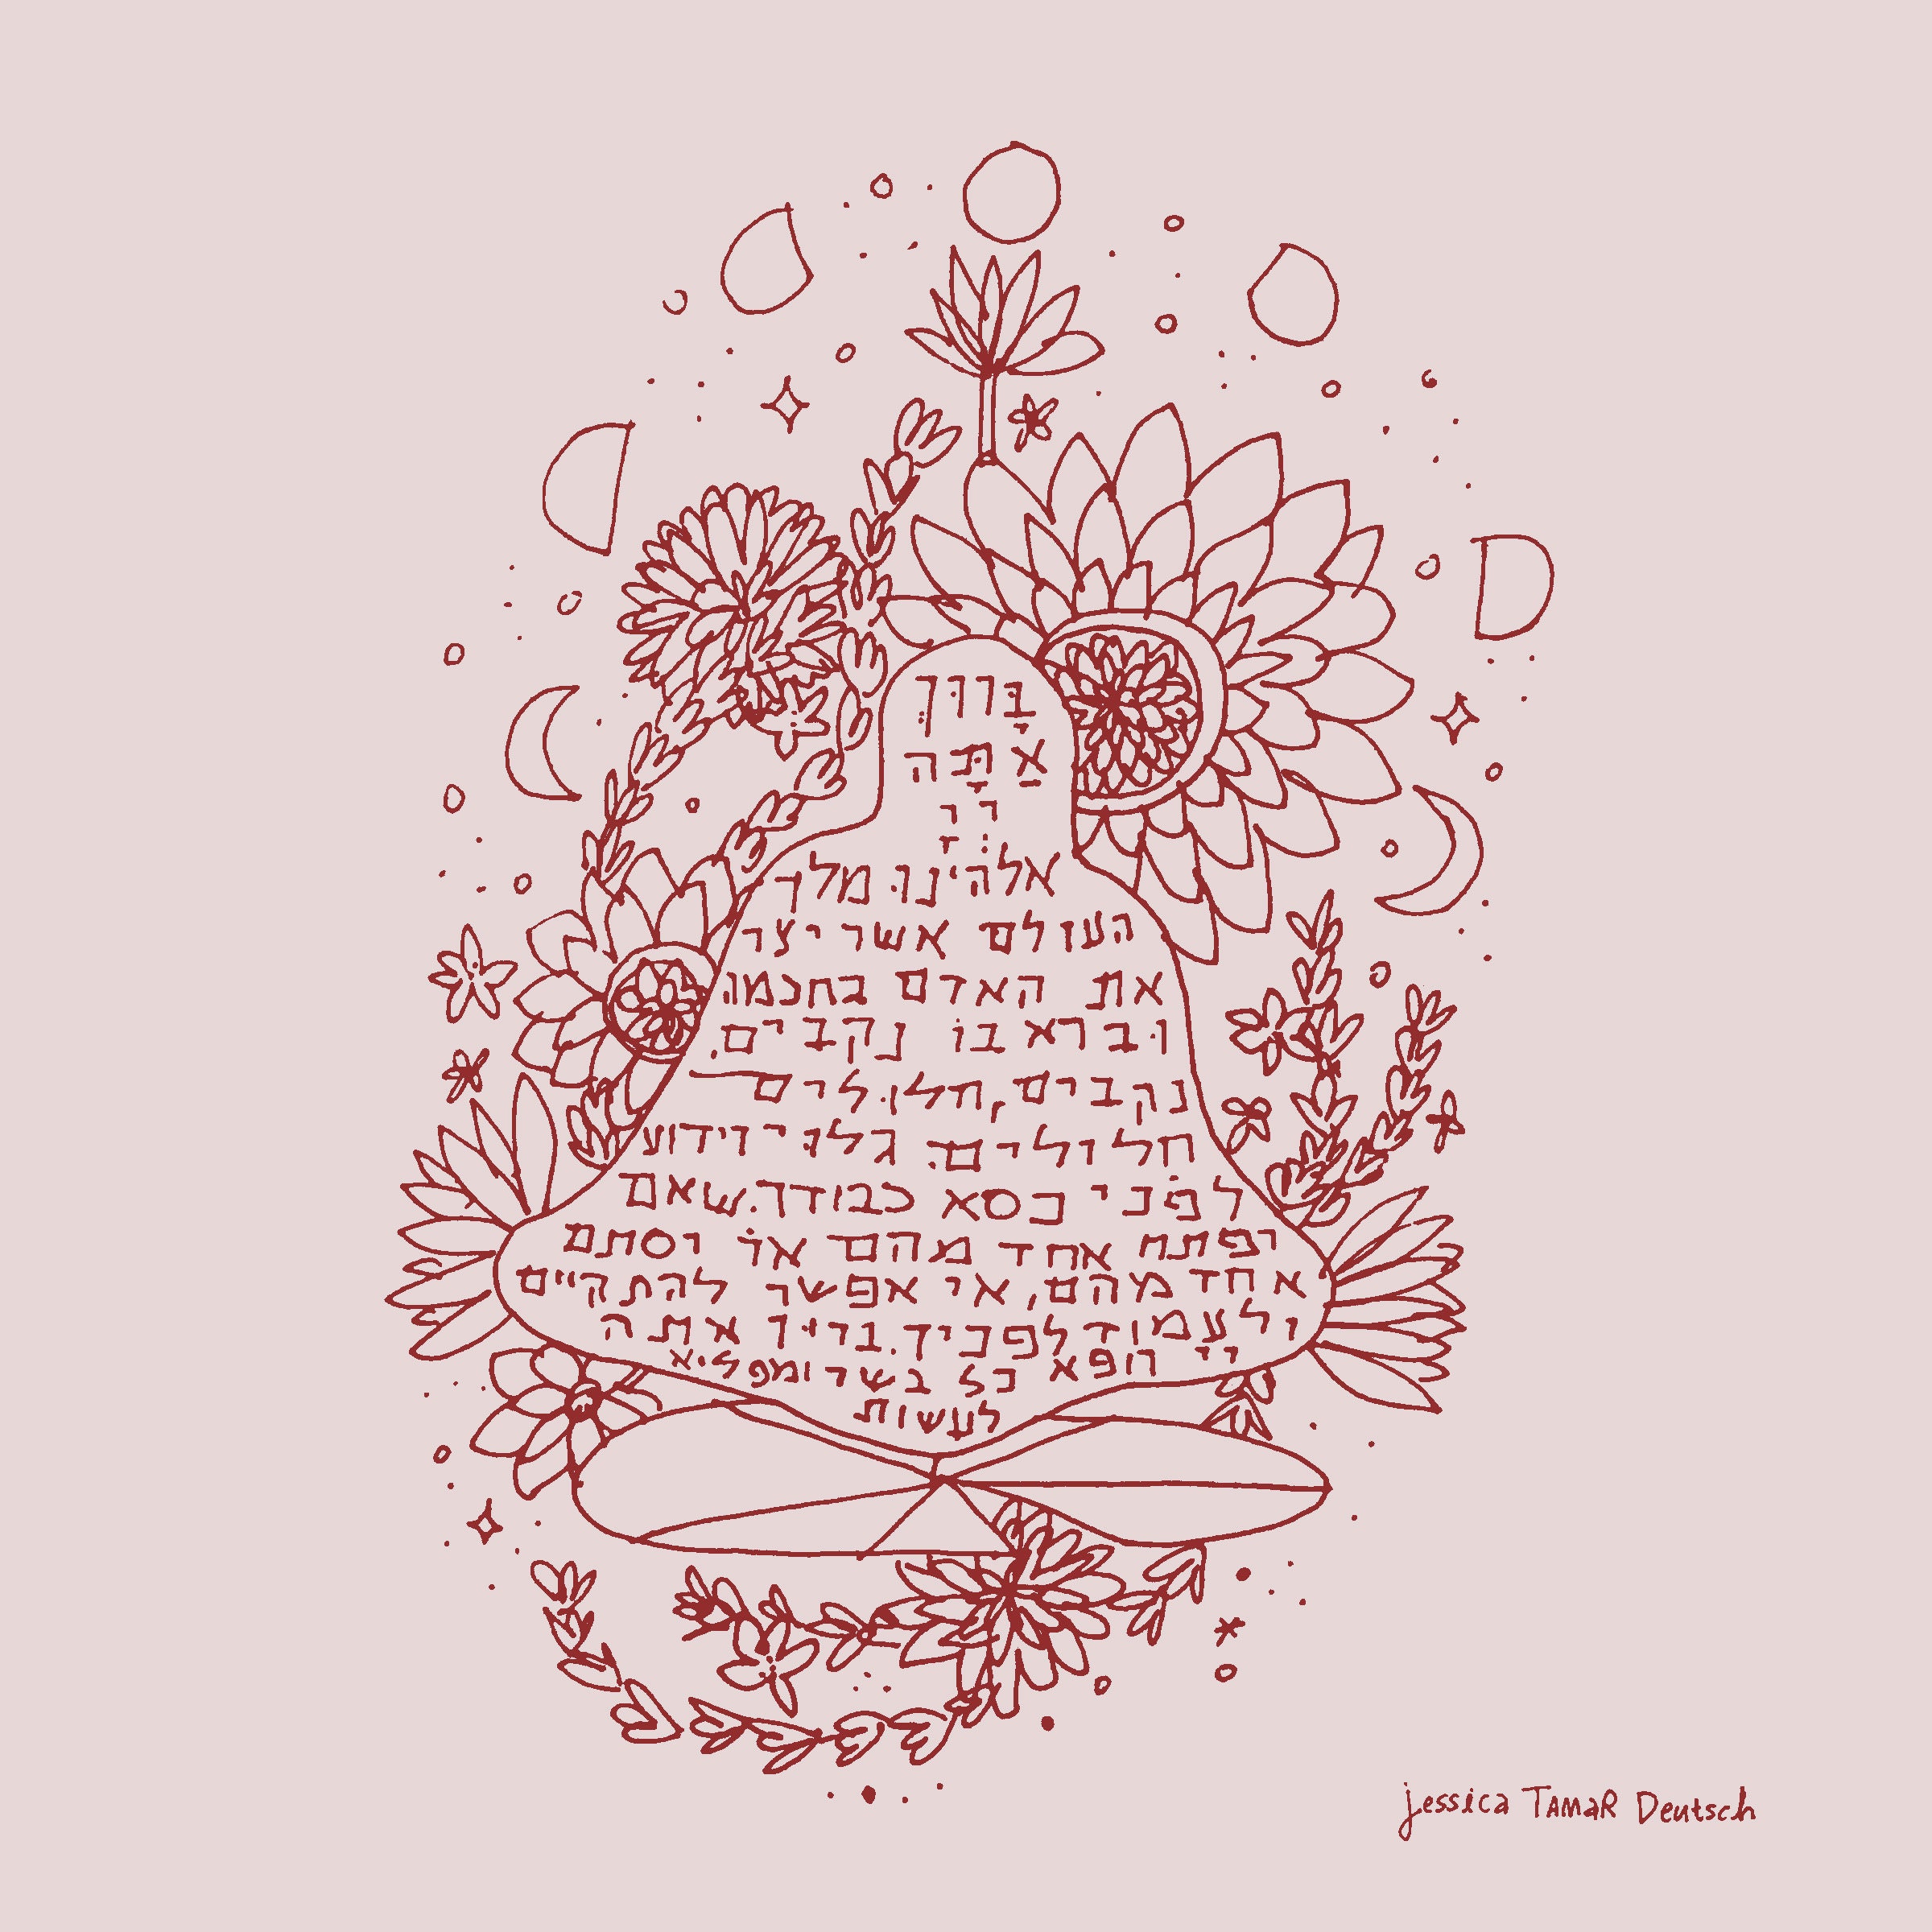 בָּרוּךְ
אַתָּה
יְיָ
אלהינו מלך
העולם אשר יצר
את האדם בחכמה
וברא בו נקבים.
נקבים, חלולים
חלולים. גלוי וידוע
לפני כסא כבודך. שאם
יפתח אחד מהם או יסתם
אחד מהם, אי אפשר להתקיים
ולעמוד לפניך. ברוך אתה
יי רופא כל בשר ומפליא
לעשות
jessica TAMAR Deutsch